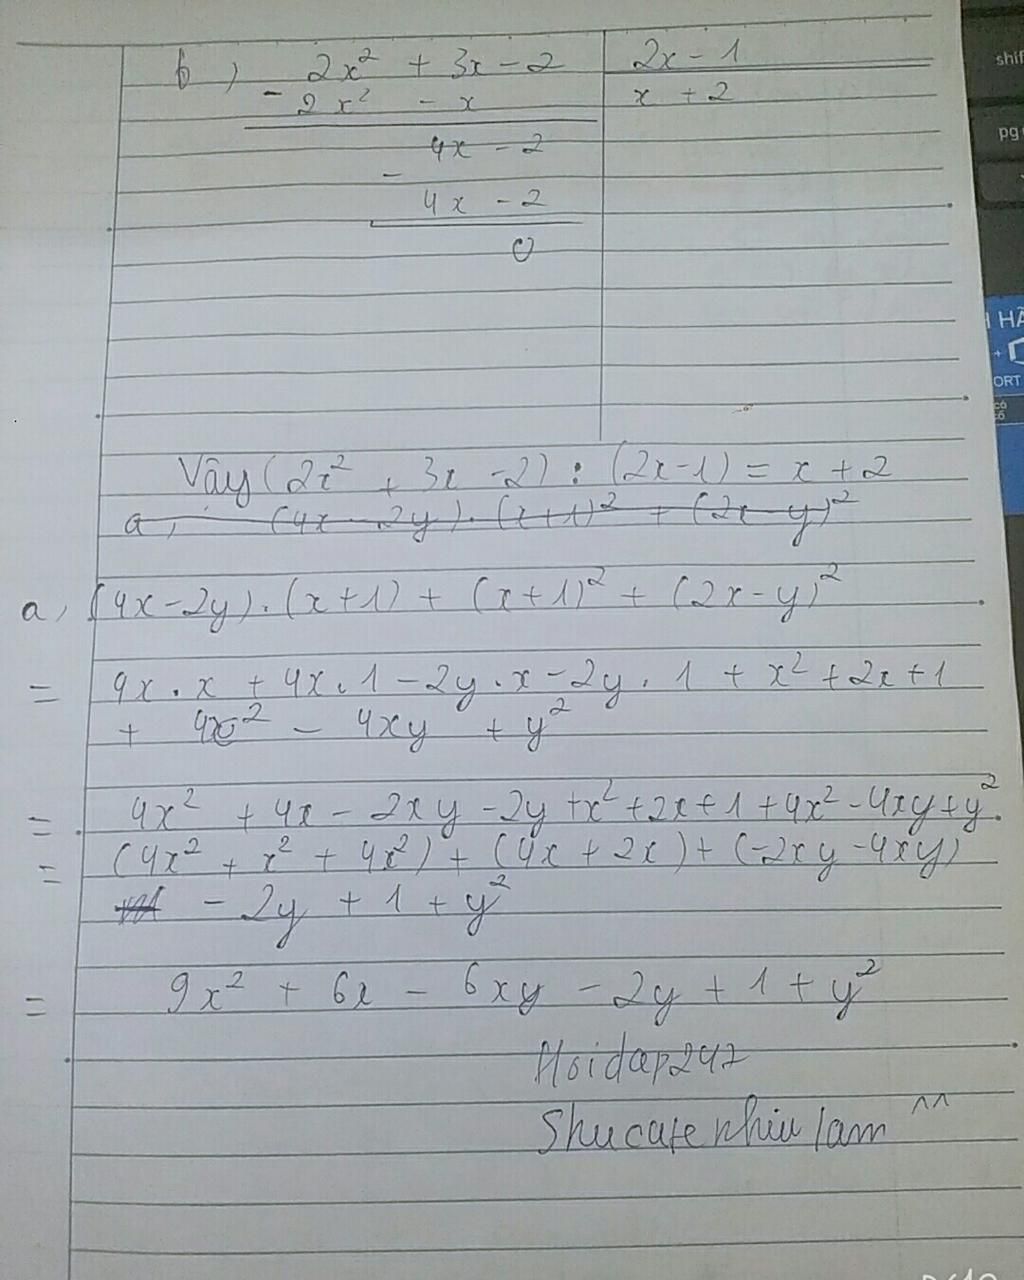 b) 2x² + 3x - 2 | 2x - 1
- 2x² - x | x + 2
4x - 2
-
4x - 2
0
Vậy (2x² + 3x - 2) : (2x - 1) = x + 2
a, (4x - 2y) . (x+1)² + (2x - y)²
a, (4x - 2y) . (x+1) + (x+1)² + (2x - y)²
= 4x . x + 4x . 1 - 2y . x - 2y . 1 + x² + 2x + 1
+ 4x² - 4xy + y²
= 4x² + 4x - 2xy - 2y + x² + 2x + 1 + 4x² - 4xy + y²
= (4x² + x² + 4x²) + (4x + 2x) + (-2xy - 4xy)
- 2y + 1 + y²
= 9x² + 6x - 6xy - 2y + 1 + y²
Hoidap247
Shucutenhiulam ^^
shif
pg
HÃ
+
ORT
có